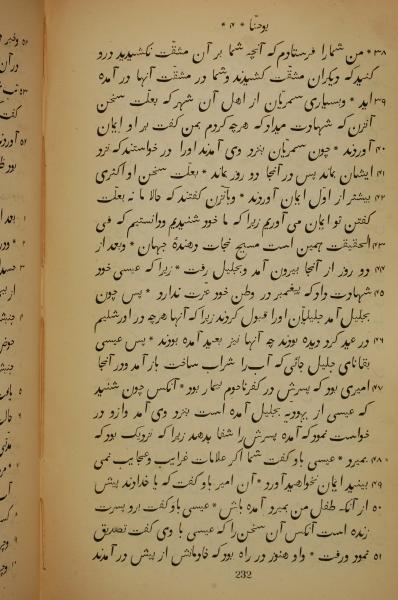 یوحنّا * ۴ *
۳۸ * من شما را فرستادم که آنچه شما بر آن مشقّت نکشیدید درو
کنید که دیگران مشقّت کشیدند و شما در مشقّت آنها در آمده
۳۹ اید * و بسیاری سمریان از اهل آن شهر که بعلّت سخن
آنزن که شهادت میداد که هرچه کردم بمن گفت بر او ایمان
۴۰ آوردند * چون سمریان بنزد وی آمدند اورا در خواستند که نزد
۴۱ ایشان بماند پس در آنجا دو روز بماند * بعلّت سخن او اکثری
۴۲ بیشتر از اوّل ایمان آوردند * و بآنزن گفتند که حالا ما نه بعلّت
گفتن تو ایمان می آوریم زیرا که ما خود شنیدیم و دانستیم که فی
۴۳ الحقیقت همین است مسیح نجات دهندهٔ جهان * و بعد از
۴۴ دو روز از آنجا بیرون آمد و بجلیل رفت * زیرا که عیسی خود
۴۵ شهادت داد که پیغمبر در وطن خود عزّت ندارد * پس چون
بجلیل آمد جلیلیان اورا قبول کردند زیرا که آنها هرچه در اورشلیم
۴۶ در عید کرد دیده بودند چه آنها نیز بعید آمده بودند * پس عیسی
بقانای جلیل جائی که آب را شراب ساخت باز آمد و در آنجا
۴۷ امیری بود که پسرش در کفرناحوم بیمار بود * آنکس چون شنید
که عیسی از یهودیه بجلیل آمده است بنزد وی آمد و ازو در
خواست نمود که آمده پسرش را شفا بدهد زیرا که نزدیک بود که
۴۸ بمیرد * عیسی باو گفت شما اگر علامات غرایب و عجایب نمی
۴۹ بینید ایمان نخواهید آورد * آن امیر باو گفت که با خداوند پیش
۵۰ از آنکه طفل من بمیرد آمده باش * عیسی باو گفت برو پسرت
زنده است آنکس آن سخن را که عیسی با وی گفت تصدیق
۵۱ نمود و رفت * و او هنوز در راه بود که خادمانش از پیش در آمدند
232